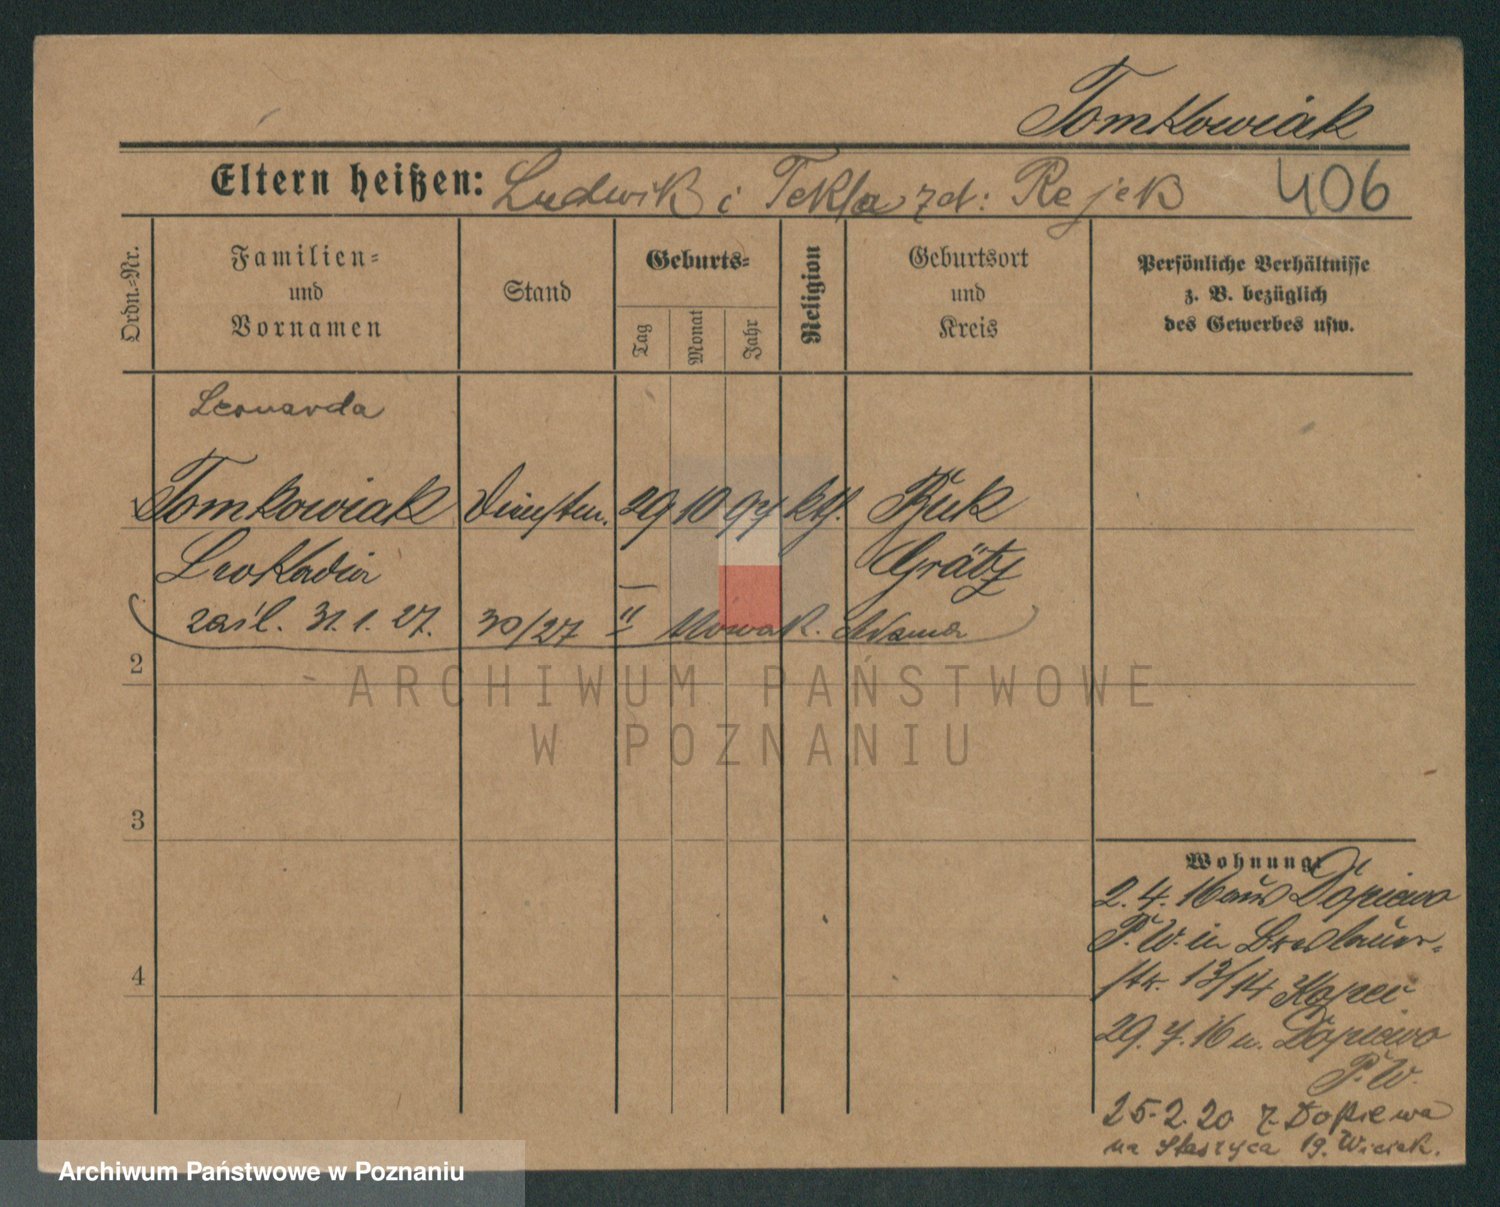 Tomkowiak
Eltern heißen: Ludwik i Tekla zd: Rejek 406
Ordn.-Nr.
Familien-
und
Vornamen
Stand
Geburts-
Tag
Monat
Jahr
Religion
Geburtsort
und
Kreis
Persönliche Verhältnisse
z. B. bezüglich
des Gewerbes usw.
Leonarda
Tomkowiak Dienstm. 29 10 97 kth. Buk
Leokadia Grätz
zaśl. 31.1.27. 30/27 II Nowak. Adama
2
3
4
Wohnung:
2.4.16 aus Dopiewo
P. W. in Breslauer-
str. 13/14
29.7.16 n. Dopiewo
P. W.
25.2.20 z. Dopiewa
na Staszyca 19. Wiciak.
ARCHIWUM PAŃSTWOWE
W POZNANIU
Archiwum Państwowe w Poznaniu